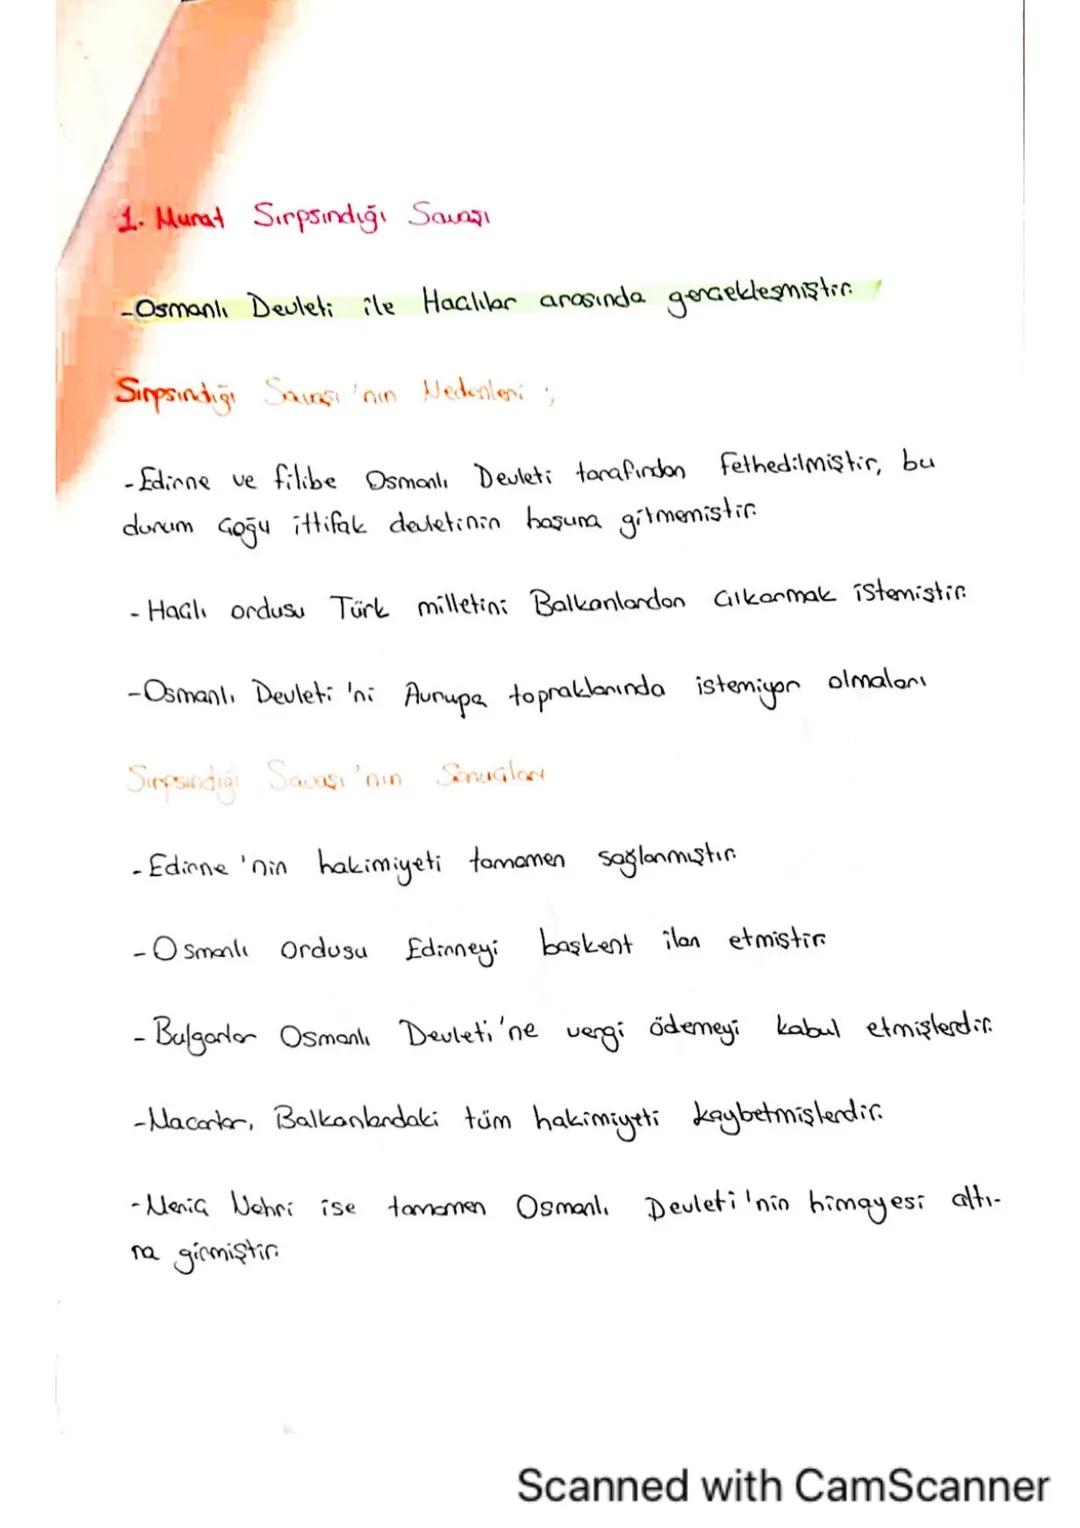 1. Murat Sırpsındığı Savaşı
-Osmanlı Devleti ile Haçlılar arasında gerçekleşmiştir.
Sırpsındığı Savaşı'nın Nedenleri ;
-Edirne ve filibe Osmanlı Devleti tarafından Fethedilmiştir, bu
durum çoğu ittifak devletinin hoşuna gitmemiştir.
- Haçlı ordusu Türk milletini Balkanlardan çıkarmak istemiştir.
-Osmanlı Devleti'ni Avrupa topraklarında istemiyor olmaları
Sırpsındığı Savaşı'nın Sonuçları
-Edirne'nin hakimiyeti tamamen sağlanmıştır.
-Osmanlı Ordusu Edirneyi başkent ilan etmiştir.
-Bulgarlar Osmanlı Devleti'ne vergi ödemeyi kabul etmişlerdir.
-Macarlar, Balkanlardaki tüm hakimiyeti kaybetmişlerdir.
-Meriç Nehri ise tamamen Osmanlı Devleti'nin himayesi altı-
na girmiştir.
Scanned with CamScanner